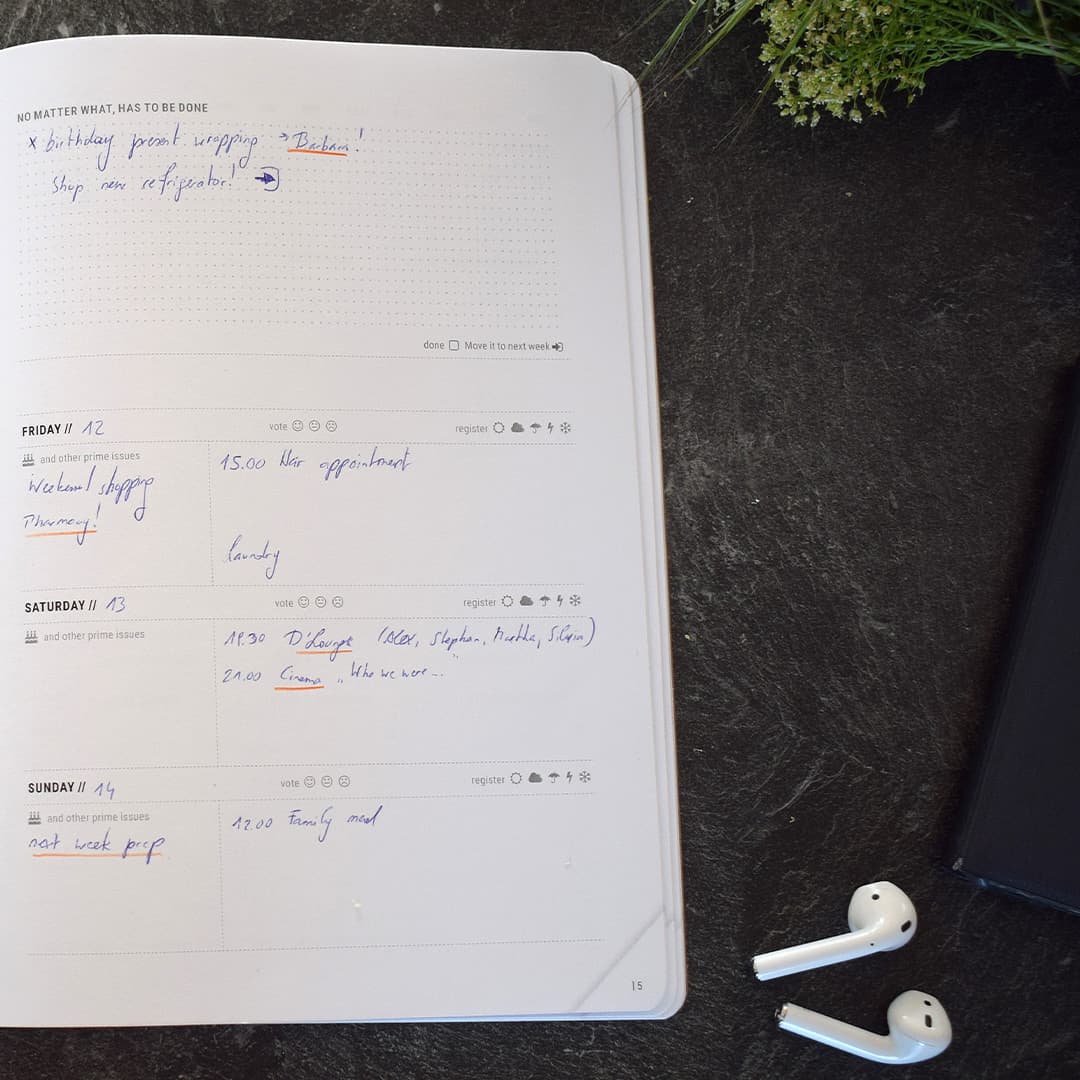 NO MATTER WHAT, HAS TO BE DONE
x birthday present wrapping → Barbara!
Shop new refrigerator!
done Move it to next week
FRIDAY // 12
vote
register
and other prime issues
Weekend shopping
Pharmacy!
15.00 Hair appointment
laundry
SATURDAY // 13
vote
register
and other prime issues
19.30 D'Lounge (Alex, Stephan, Martha, Silvia)
21.00 Cinema „Who we were..."
SUNDAY // 14
vote
register
and other prime issues
next week prep
12.00 Family meal
15